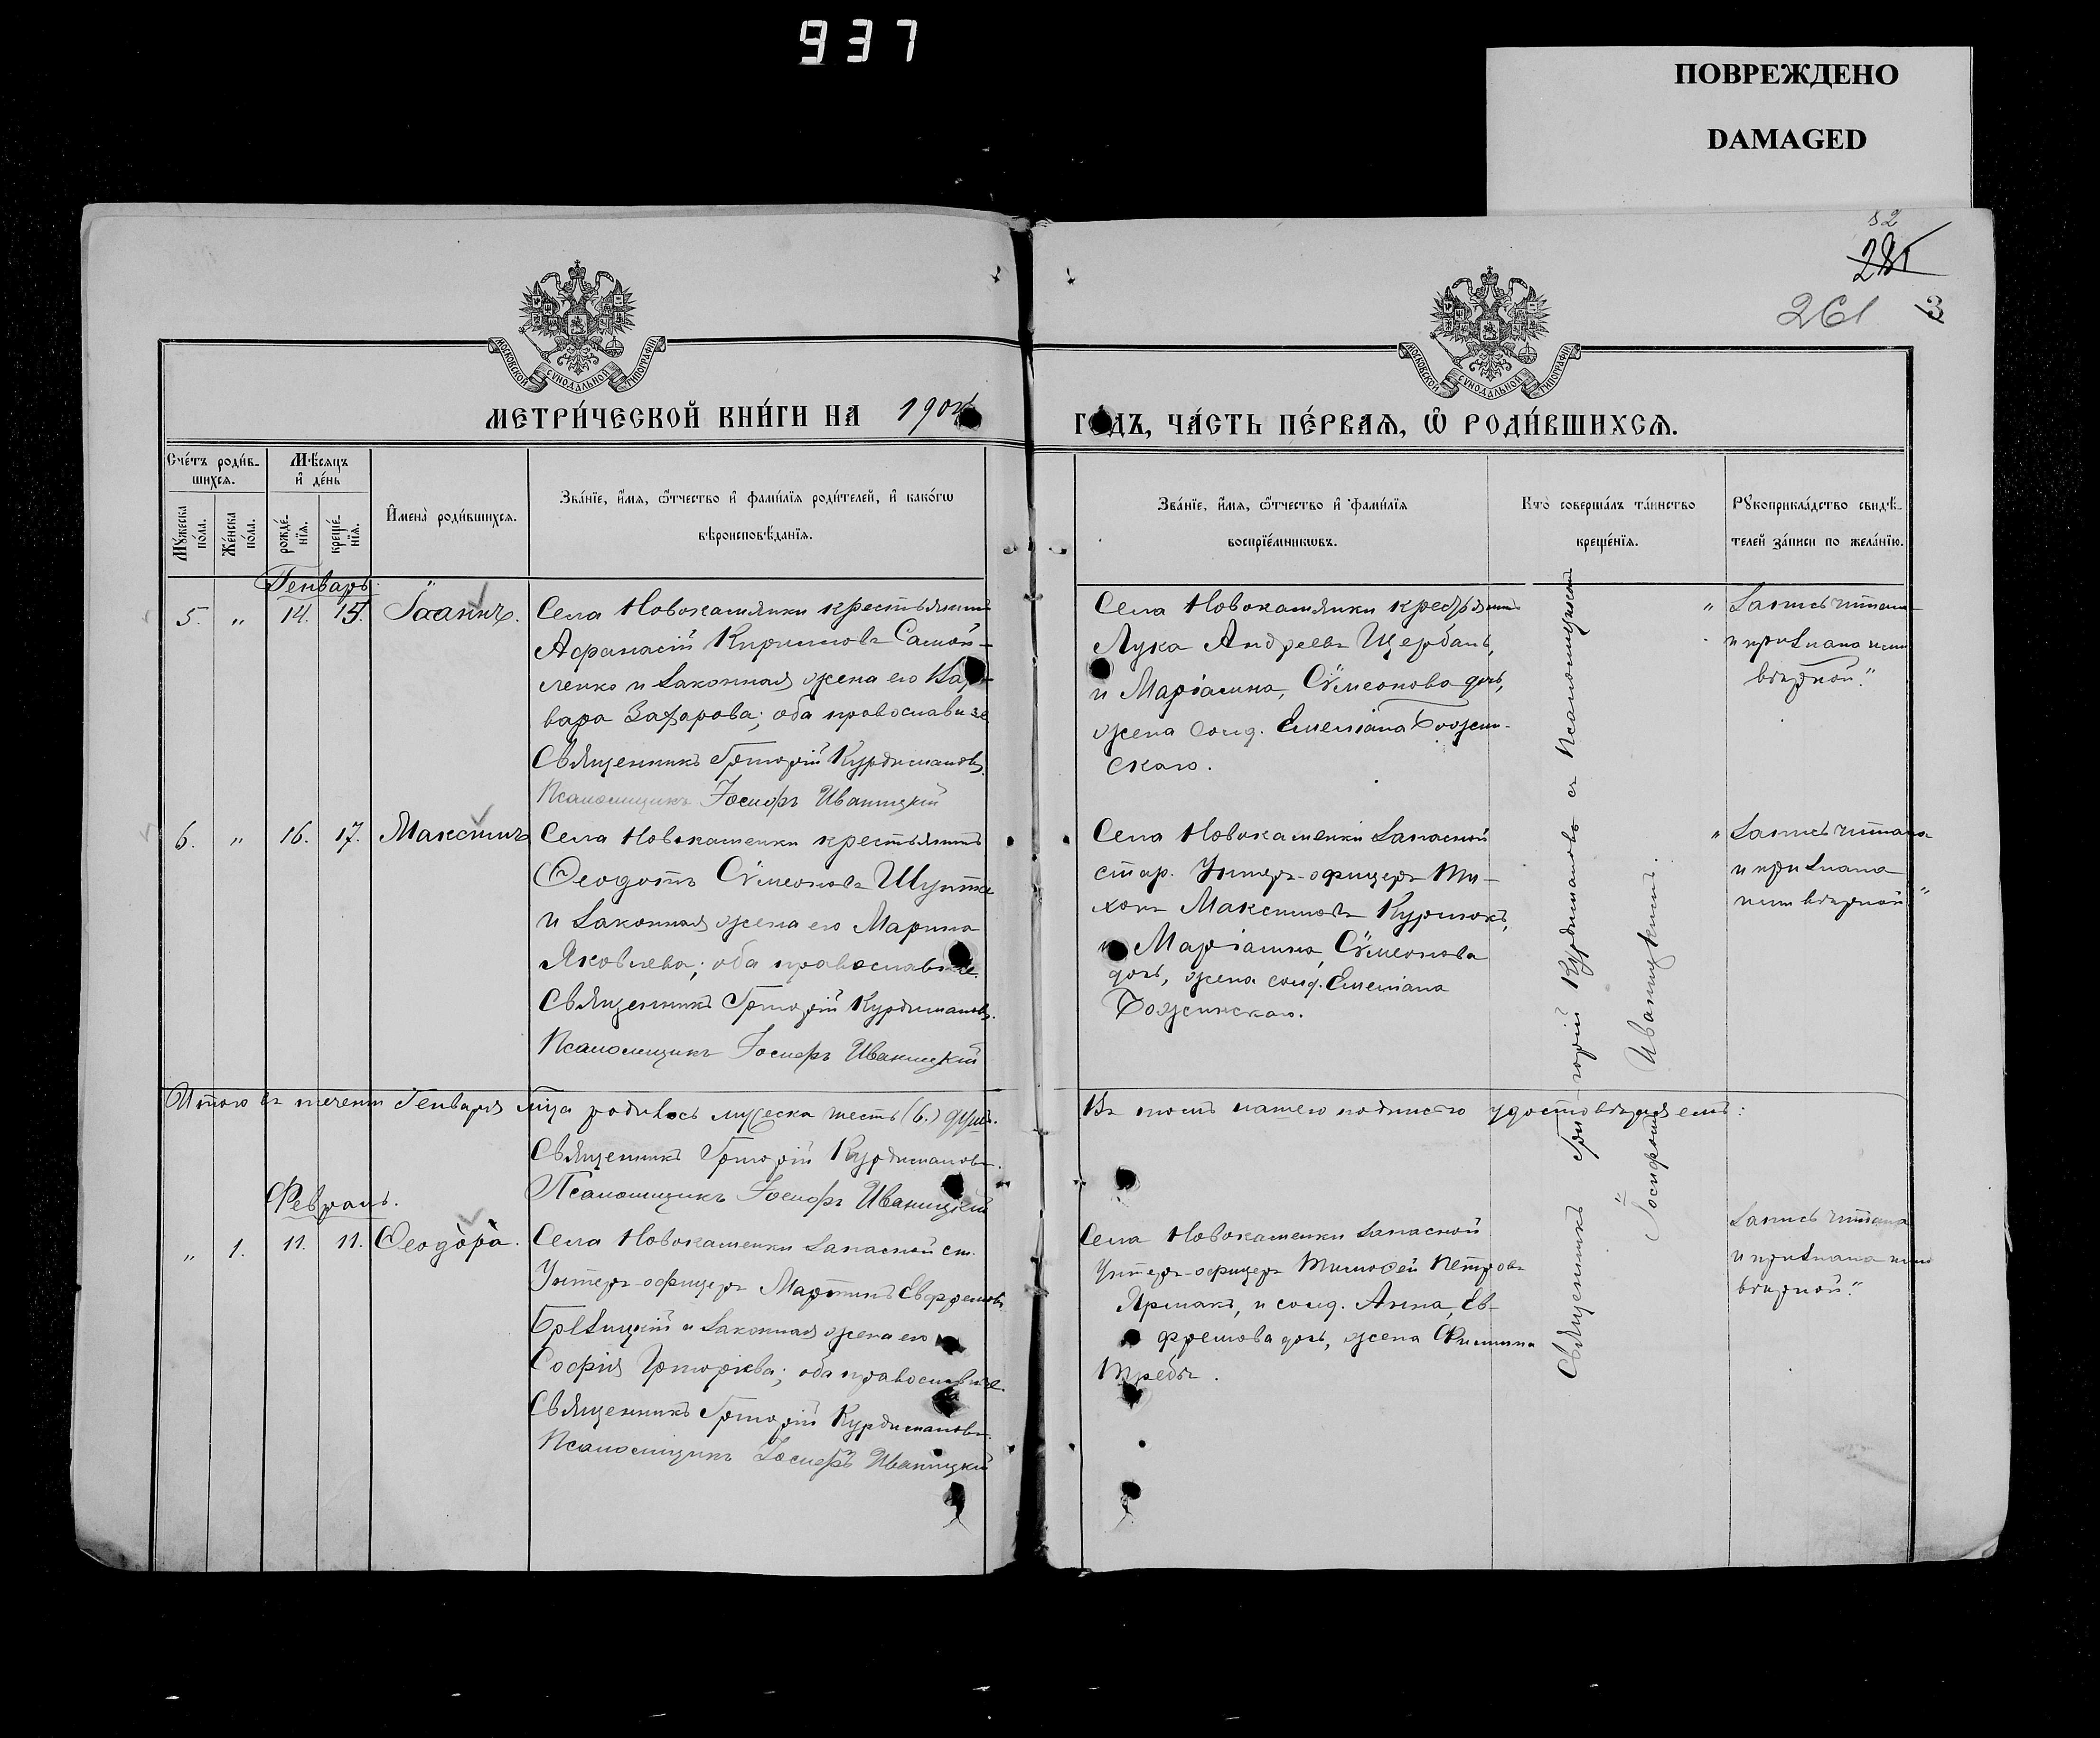 937
ПОВРЕЖДЕНО
DAMAGED
52
281
261 3
МОСКОВСКОЙ СѴНОДАЛЬНОЙ ТИПОГРАФІИ
МОСКОВСКОЙ СѴНОДАЛЬНОЙ ТИПОГРАФІИ
МЕТРИ́ЧЕСКОЙ КНИ́ГИ НА 1904
ГО́ДЪ, ЧА́СТЬ ПЕ́РВАѦ, Ѽ РОДИ́ВШИХСѦ.
Сче́тъ роди́в-
шихсѧ.
Мꙋ́жеска по́ла.
Же́нска по́ла.
Мѣ́сѧцъ
и҆ де́нь
рожде́-нїѧ.
креще́-нїѧ.
И҆мена̀ роди́вшихсѧ.
Зва́нїе, и҆́мѧ, ѻ҆́тчество и҆ фами́лїѧ роди́телей, и҆ како́гѡ
вѣроисповѣ́данїѧ.
Зва́нїе, и҆́мѧ, ѻ҆́тчество и҆ фами́лїѧ
воспрїе́мникѡвъ.
Кто̀ соверша́лъ та́инство
креще́нїѧ.
Рꙋкоприкла́дство свидѣ́-
телей за́писи по жела́нїю.
Генварь.
5. „ 14. 15. Іоаннъ.
Села Новокаменки крестьянинъ
Афанасій Кирилловъ Самой-
ленко и законная жена его Вар-
вара Захарова; оба православные
Священникъ Григорій Курдимановъ.
Псаломщикъ Іосифъ Иваницкій
Села Новокаменки крестьянинъ
Лука Андреевъ Щербань,
и Маріамна, Сѵмеонова дочь,
жена солд. Емеліана Божин-
скаго.
„ Запись читана
и признана нами
вѣрной."
6. „ 16. 17. Максимъ
Села Новокаменки крестьянинъ
Ѳеодотъ Сѵмеоновъ
и законная жена его Марина
Яковлева; оба православные.
Священникъ Григорій Курдимановъ.
Псаломщикъ Іосифъ Иваницкій
Села Новокаменки запасной
стар. Унтеръ-офицеръ Ти-
хонъ Максимовъ
и Маріамна, Сѵмеонова
дочь, жена солд. Емеліана
Божинскаго.
„ Запись читана
и признана
нами вѣрной"
Итого въ теченіи Генваря м-ца родилось мужеска шесть (6.) душъ.
Священникъ Григорій Курдимановъ.
Псаломщикъ Іосифъ Иваницкій
Въ томъ нашею подписью удостовѣряемъ:
Февраль.
„ 1. 11. 11. Ѳеодора.
Села Новокаменки запасной ст.
Унтеръ-офицеръ Мартинъ Евфремовъ
Брезицкій и законная жена его
Софія Григоріева; оба православные.
Священникъ Григорій Курдимановъ.
Псаломщикъ Іосифъ Иваницкій
Села Новокаменки запасной
Унтеръ-офицеръ Тимофей Петровъ
Ярмакъ, и солд. Анна, Ев-
фремова дочь, жена Филиппа
Требы.
Запись читана
и признана нами
вѣрной."
Священникъ Григорій Курдимановъ съ Псаломщикомъ
Іосифомъ Иваницкимъ.